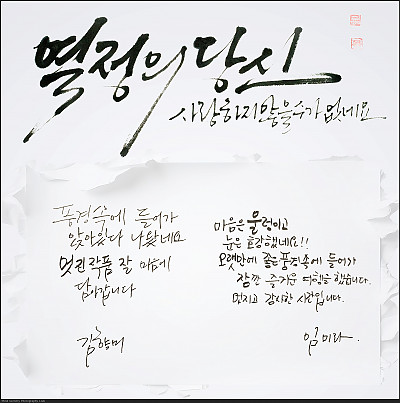 열정의 당신
사랑하지 않을수가 없네요
풍경속에 들어가
앉아있다 나왔네요
멋진작품 잘 마음에
담아갑니다
김향미
마음은 울렁이고
눈은 호강했네요!!
오랫만에 좋은풍경속에 들어가
잠깐 즐거운 여행을 했습니다.
멋지고 감사한 사람입니다.
임미라.